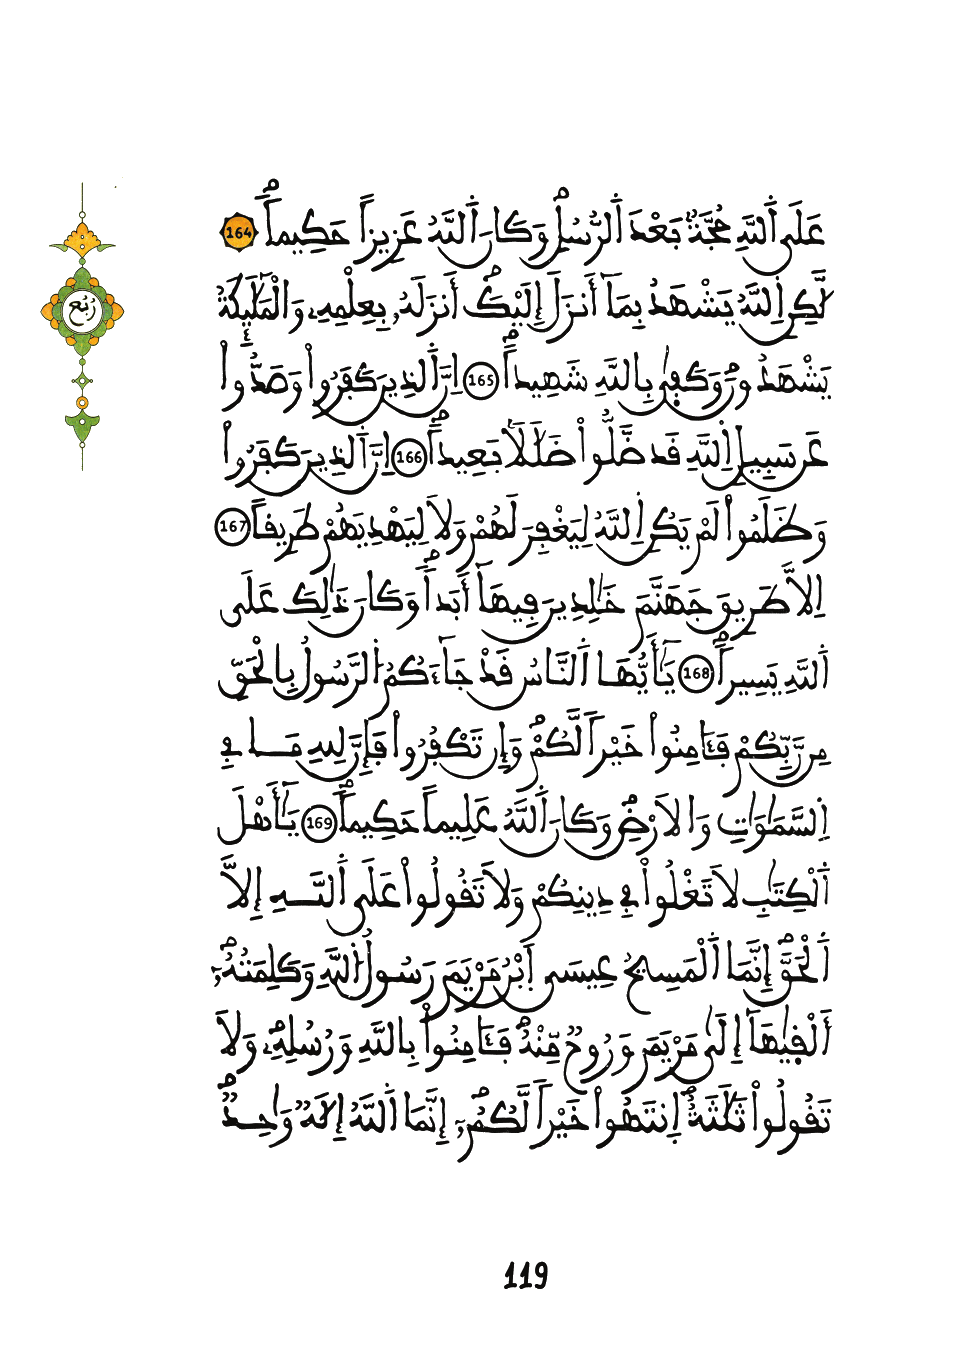 عَلَى اَ۬للَّهِ حُجَّةُۢ بَعْدَ اَ۬لرُّسُلِۖ وَكَانَ اَ۬للَّهُ عَزِيزاً حَكِيماًۖ 164
لَّٰكِنِ اِ۬للَّهُ يَشْهَدُ بِمَآ أَنزَلَ إِلَيْكَۖ أَنزَلَهُۥ بِعِلْمِهِۦ وَالْمَلَٰٓئِكَةُ
يَشْهَدُونَۖ وَكَف۪ىٰ بِاللَّهِ شَهِيداًۖ 165 اِنَّ اَ۬لذِينَ كَفَرُواْ وَصَدُّواْ
عَن سَبِيلِ اِ۬للَّهِ قَد ضَّلُّواْ ضَلَٰلاَۢ بَعِيداًۖ 166 اِنَّ اَ۬لذِينَ كَفَرُواْ
وَظَلَمُواْ لَمْ يَكُنِ اِ۬للَّهُ لِيَغْفِرَ لَهُمْ وَلاَ لِيَهْدِيَهُمْ طَرِيقاً 167
اِلاَّ طَرِيقَ جَهَنَّمَ خَٰلِدِينَ فِيهَآ أَبَداًۖ وَكَانَ ذَٰلِكَ عَلَى
اَ۬للَّهِ يَسِيراًۖ 168 يَٰٓأَيُّهَا اَ۬لنَّاسُ قَدْ جَآءَكُمُ اُ۬لرَّسُولُ بِالْحَقِّ
مِن رَّبِّكُمْ فَـَٔامِنُواْ خَيْراً لَّكُمْۖ وَإِن تَكْفُرُواْ فَإِنَّ لِلهِ مَا فِے
اِ۬لسَّمَٰوَٰتِ وَالَارْضِۖ وَكَانَ اَ۬للَّهُ عَلِيماً حَكِيماًۖ 169 يَٰٓأَهْلَ
اَ۬لْكِتَٰبِ لاَ تَغْلُواْ فِے دِينِكُمْ وَلاَ تَقُولُواْ عَلَى اَ۬للَّهِ إِلاَّ
اَ۬لْحَقَّۖ إِنَّمَا اَ۬لْمَسِيحُ عِيسَى اَ۪بْنُ مَرْيَمَ رَسُولُ اُ۬للَّهِ وَكَلِمَتُهُۥٓۖ
أَلْق۪ىٰهَآ إِلَىٰ مَرْيَمَ وَرُوحٞ مِّنْهُۖ فَـَٔامِنُواْ بِاللَّهِ وَرُسُلِهِۦۖ وَلاَ
تَقُولُواْ ثَلَٰثَةٌۖ اِ۪نتَهُواْ خَيْراً لَّكُمُۥٓۖ إِنَّمَا اَ۬للَّهُ إِلَٰهٞ وَٰحِدٞۖ
رُبْع
119